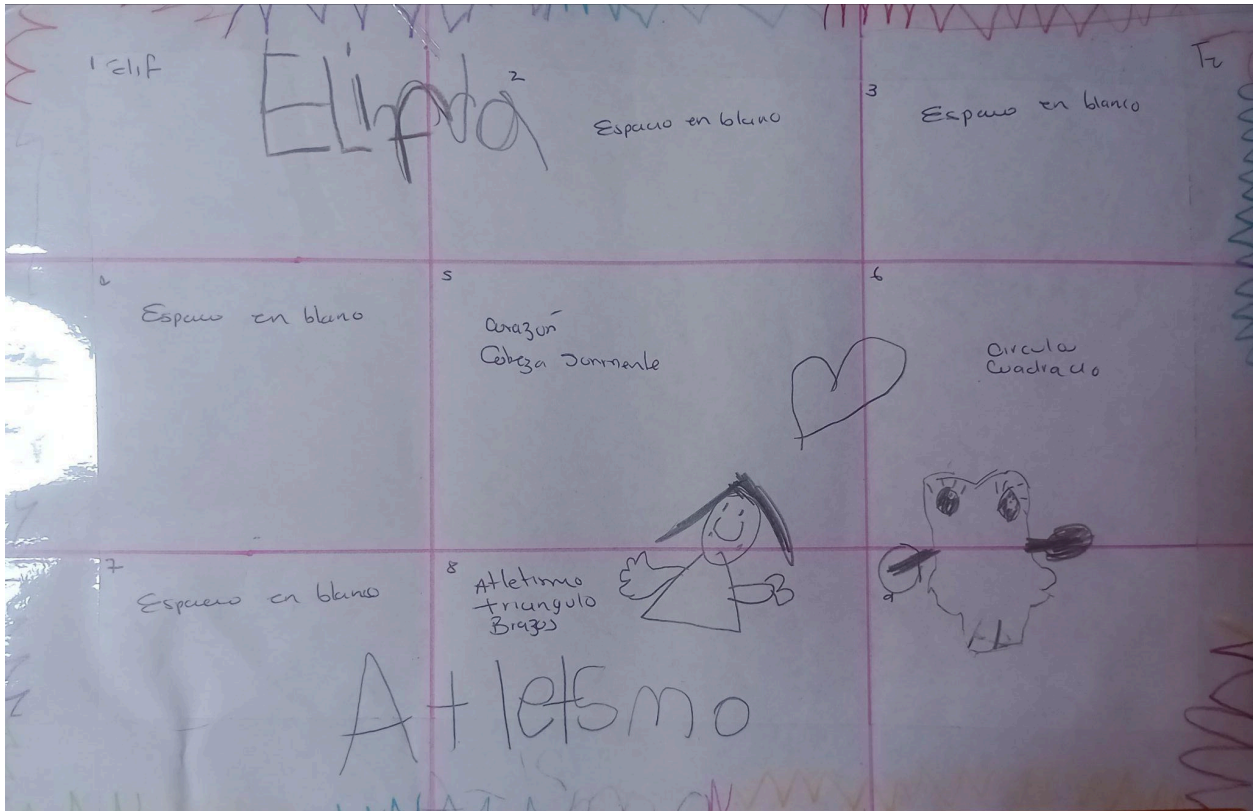 1 Elif
2
Espacio en blanco
3
Espacio en blanco
Espacio en blanco
5
Corazón
Cabeza Sonriente
6
Circulo
Cuadrado
7
Espacio en blanco
8
Atletismo
triangulo
Brazos
9
Atletismo